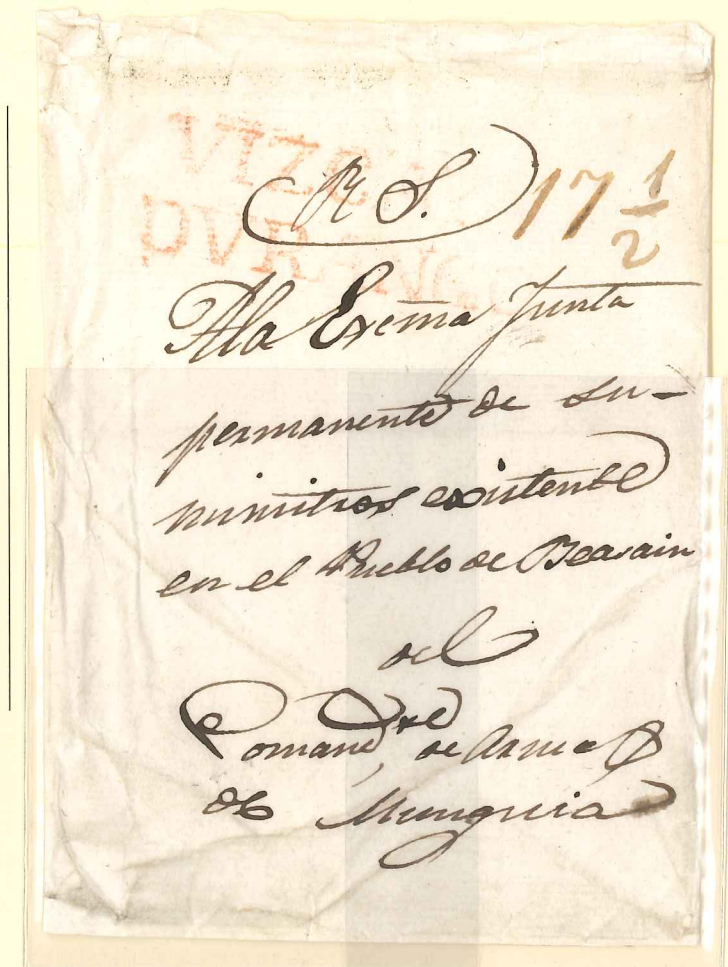 VIZC
R S. 17 1/2
DVRANG
Ala Exc̃ma Junta
permanente de su-
ministros existente
en el Pueblo de Beasain
del
Comand.te de Armas
de Munguia